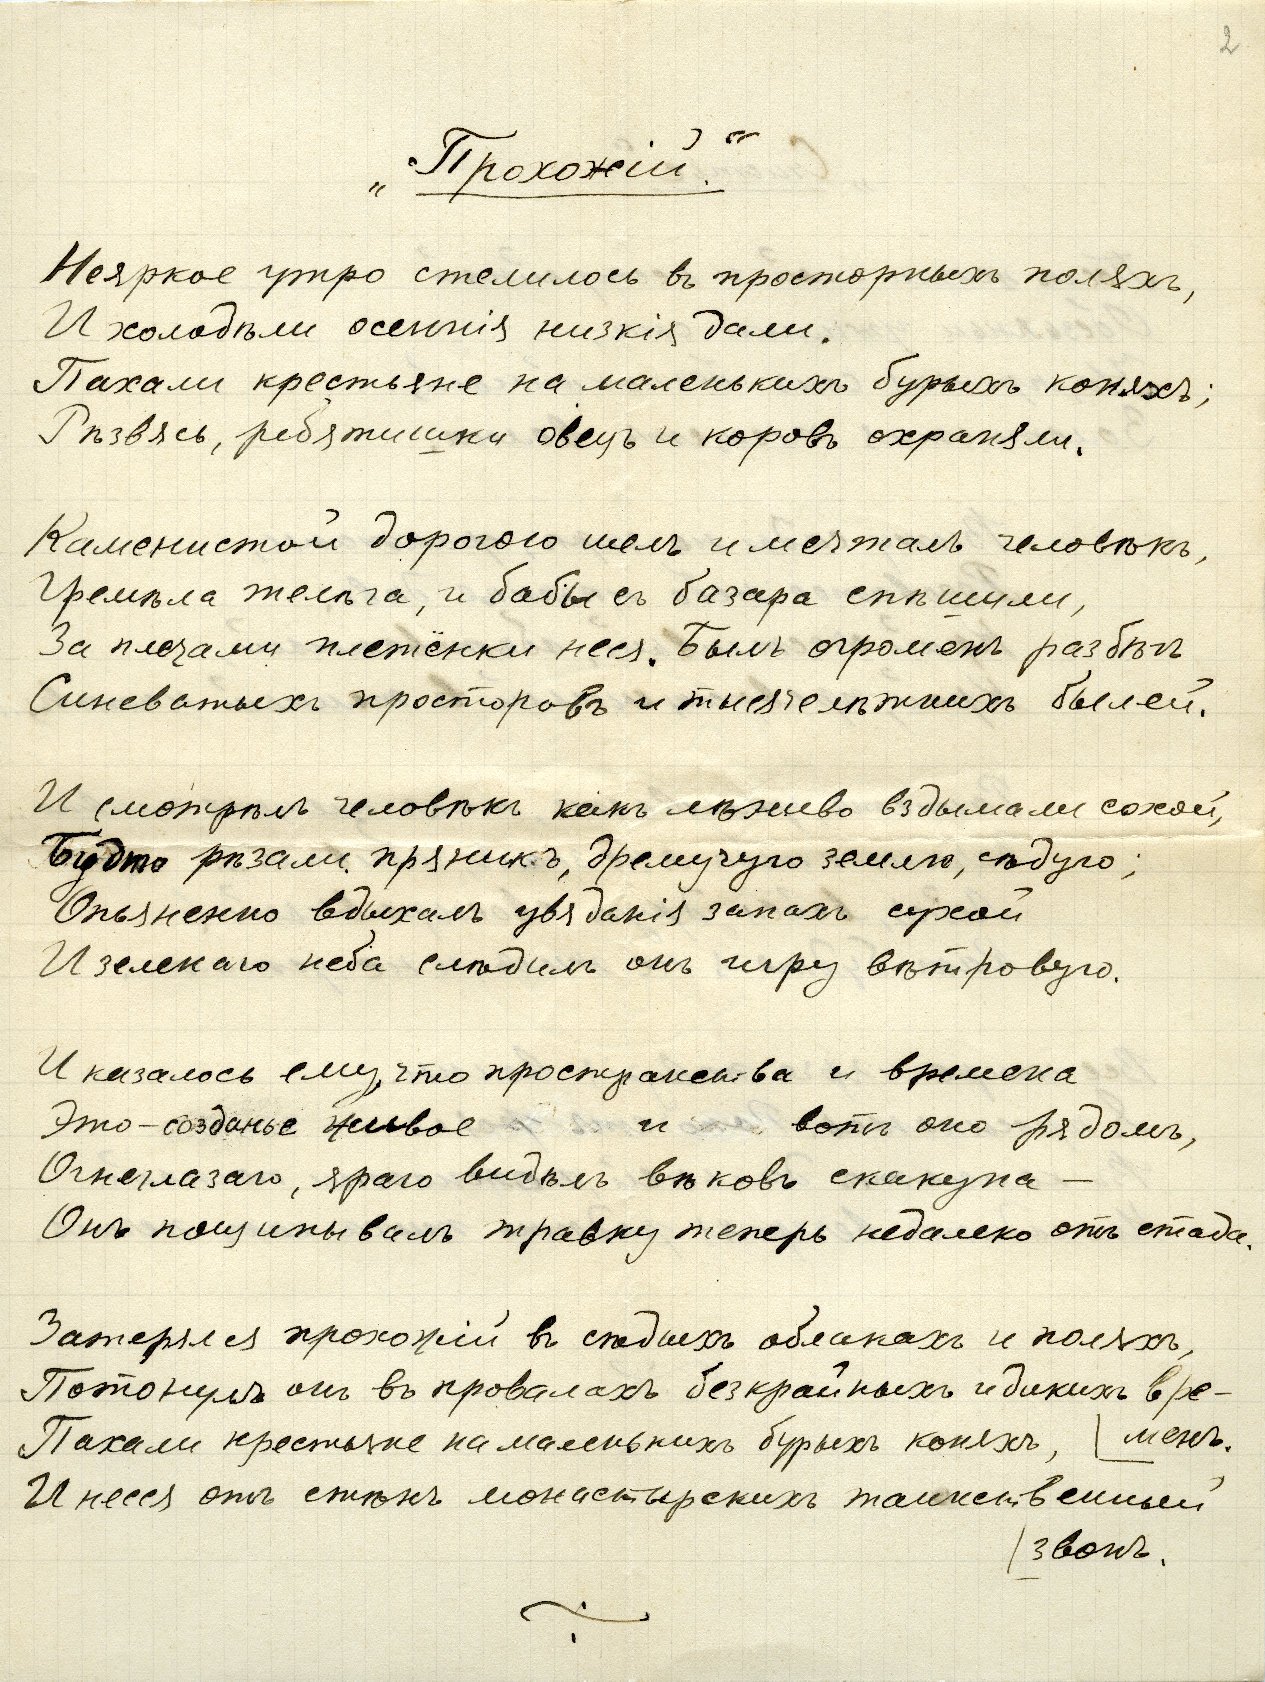 2
„Прохожій."
Неяркое утро стелилось въ просторныхъ поляхъ,
И холодѣли осеннія низкія дали.
Пахали крестьяне на маленькихъ бурыхъ коняхъ;
Рѣзвясь, ребятишки овецъ и коровъ охраняли.
Каменистой дорогою шелъ и мечталъ человѣкъ,
Гремѣла телѣга, и бабы съ базара спѣшили,
За плечами плетёнки неся. Былъ огроменъ разбѣгъ
Синеватыхъ просторовъ и тысячелѣтнихъ былей.
И смотрѣлъ человѣкъ какъ лѣниво вздымали сохой,
Будто рѣзали пряникъ, дремучую землю, сѣдую;
Опьяненно вдыхалъ увяданія запахъ сухой
И зеленаго неба слѣдилъ онъ игру вѣтровую.
И казалось ему, что пространства и времена
Это – созданье живое и вотъ оно рядомъ,
Огнеглазаго, яраго видѣлъ вѣковъ скакуна –
Онъ пощипывалъ травку теперь недалеко отъ стада.
Затерялся прохожій въ сѣдыхъ облакахъ и поляхъ,
Потонулъ онъ въ провалахъ безкрайныхъ и дикихъ вре-
Пахали крестьяне на маленькихъ бурыхъ коняхъ, | менъ.
И несся отъ стѣнъ монастырскихъ таинственный
| звонъ.